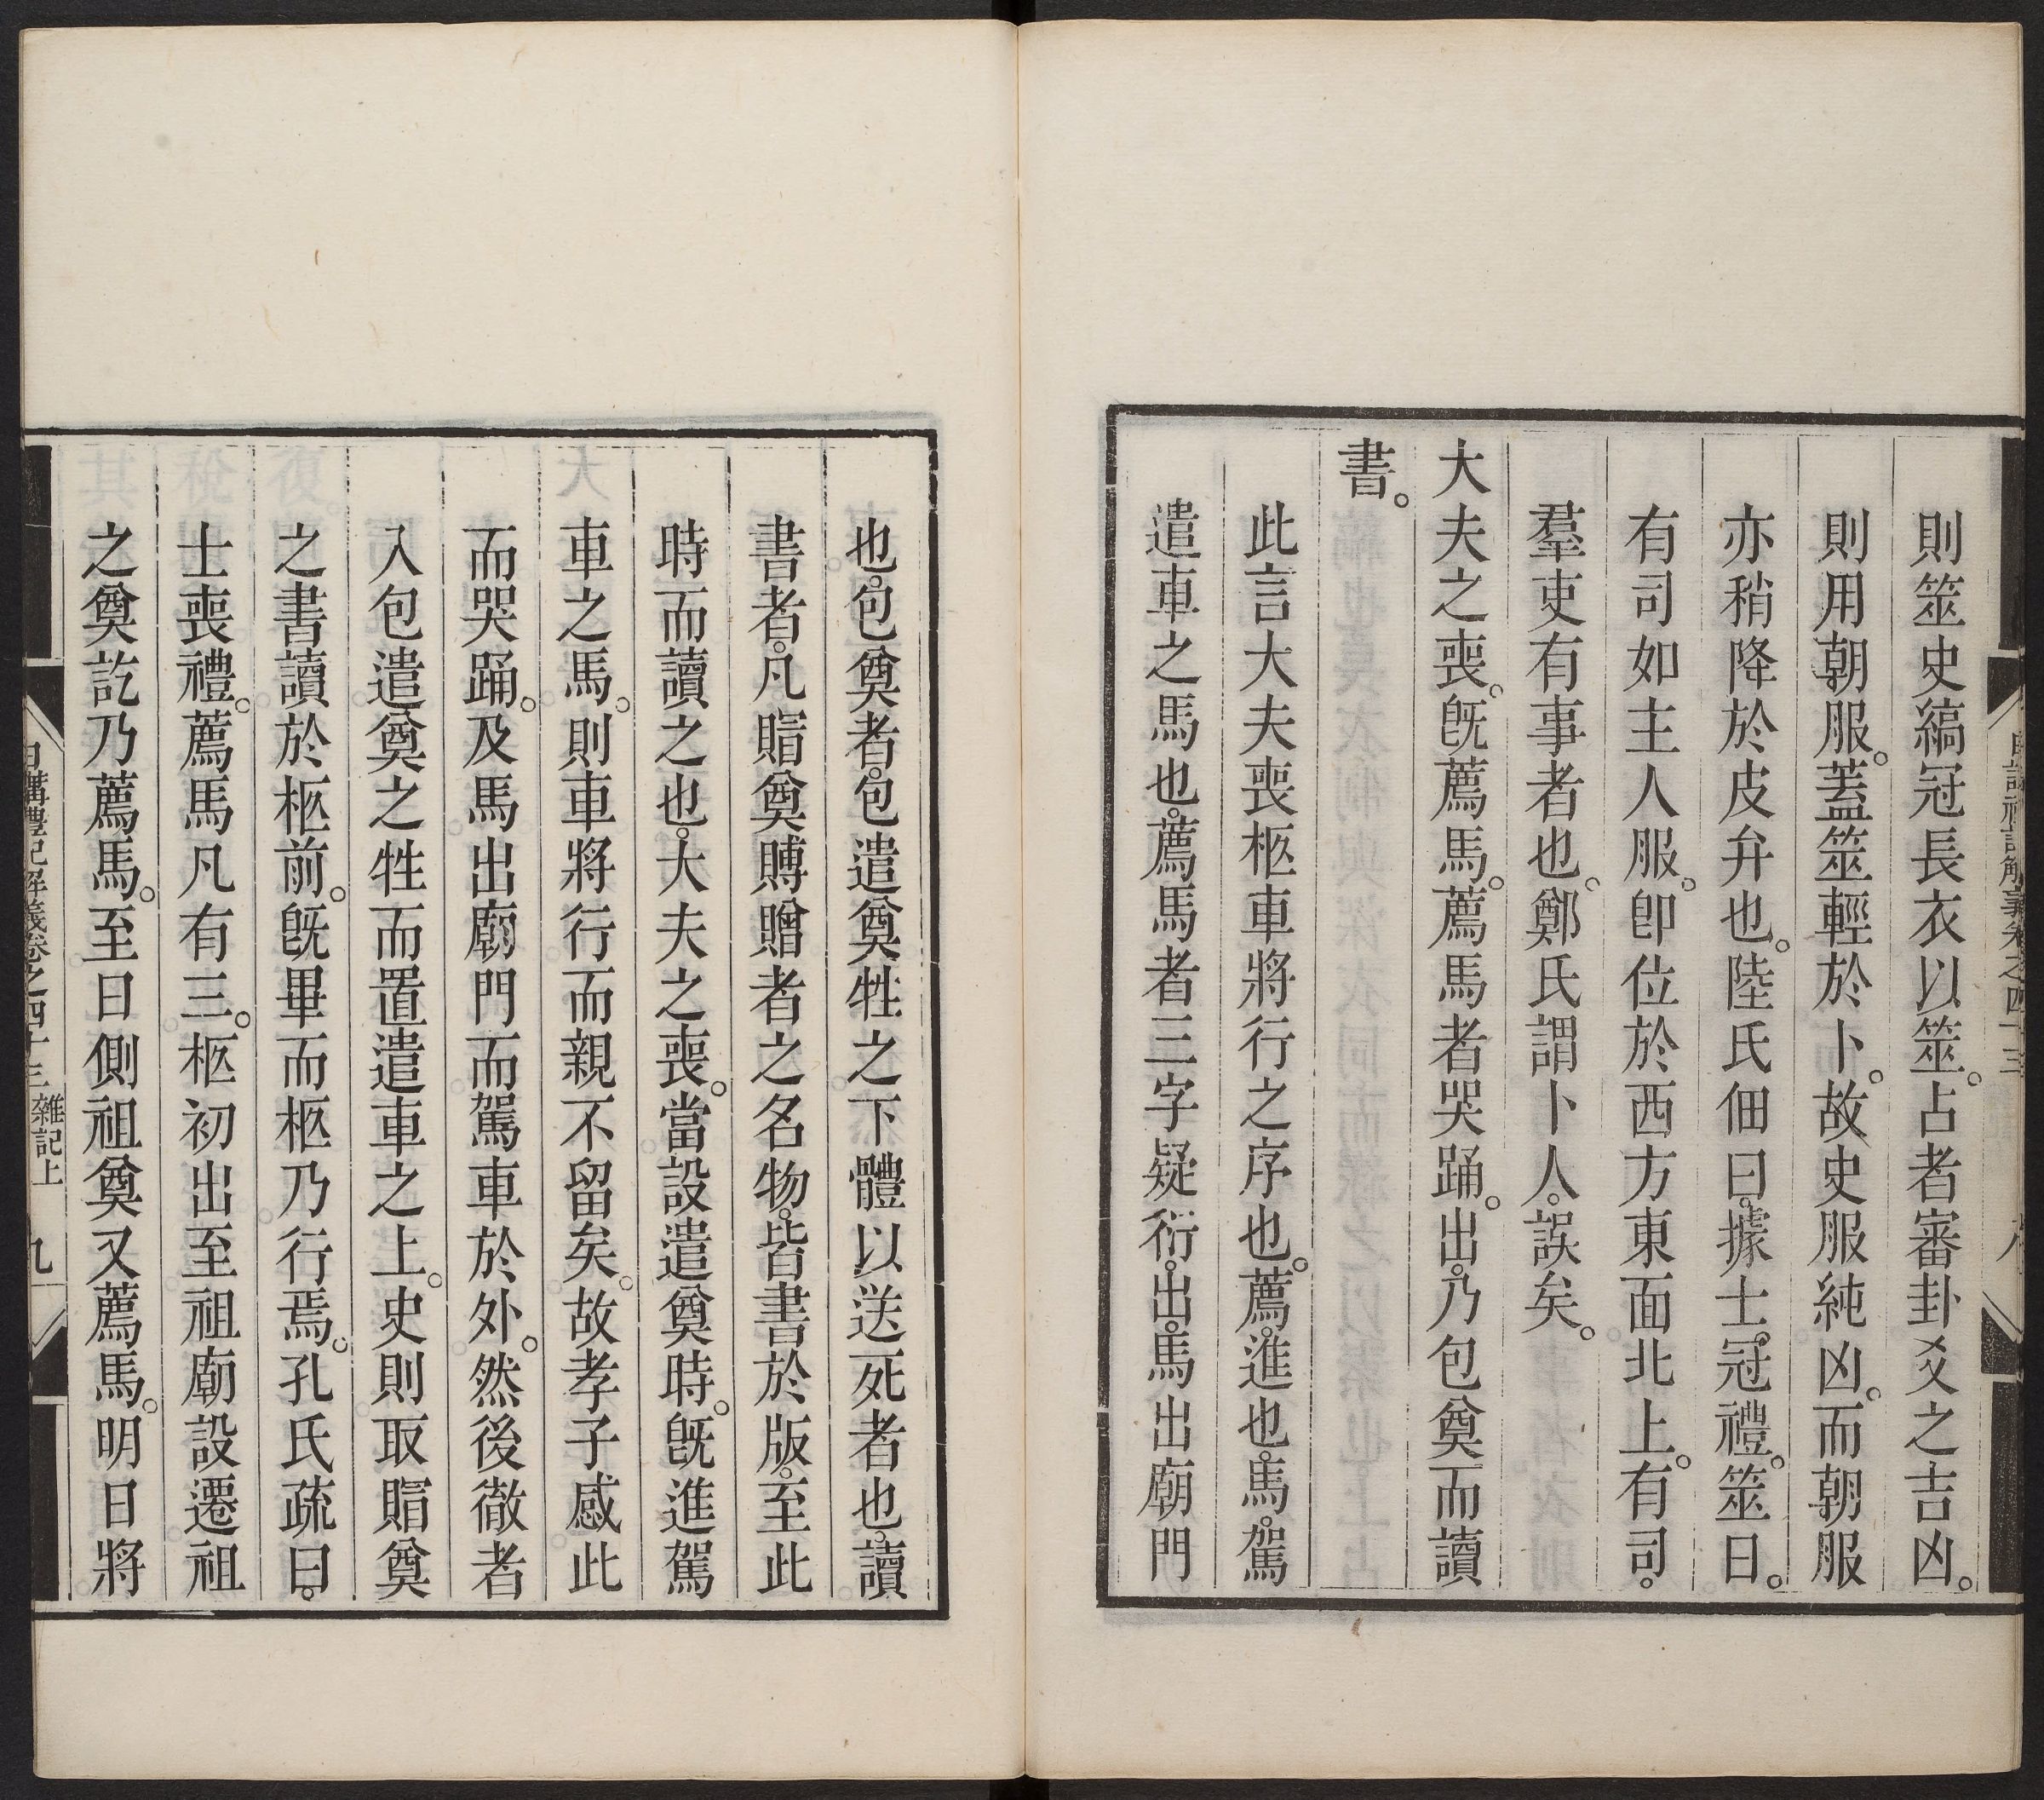 則筮史縞冠長衣以筮。占者審卦爻之吉凶。
則用朝服。蓋筮輕於卜。故史服純凶。而朝服
亦稍降於皮弁也。陸氏佃曰。據士冠禮。筮日。
有司如主人服。卽位於西方東面北上。有司。
羣吏有事者也。鄭氏謂卜人。誤矣。
大夫之喪。旣薦馬。薦馬者哭踊。出。乃包奠而讀
書。
此言大夫喪柩車將行之序也。薦。進也。馬。駕
遣車之馬也。薦馬者三字疑衍。出。馬出廟門
也。包奠者。包遣奠牲之下體以送死者也。讀
書者。凡賵奠賻贈者之名物。皆書於版。至此
時而讀之也。大夫之喪。當設遣奠時。旣進駕
車之馬。則車將行而親不留矣。故孝子感此
而哭踊。及馬出廟門而駕車於外。然後徹者
入包遣奠之牲而置遣車之上。史則取賵奠
之書讀於柩前。旣畢而柩乃行焉。孔氏疏曰。
士喪禮。薦馬凡有三。柩初出至祖廟設遷祖
之奠訖乃薦馬。至日側祖奠又薦馬。明日將
日講禮記解義卷之四十三 雜記上 九